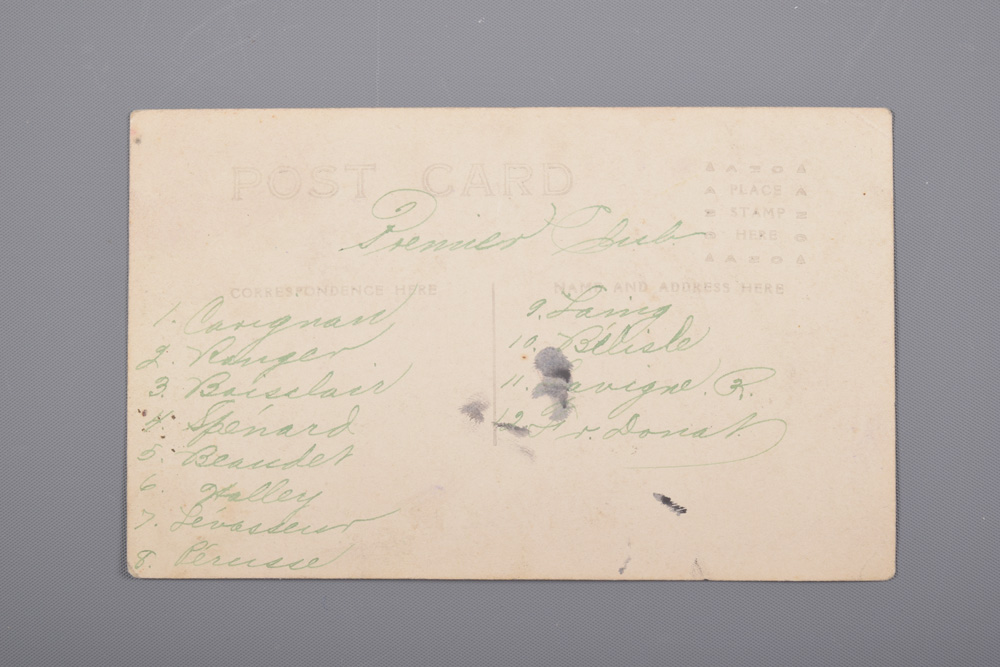 POST CARD
PLACE
STAMP
HERE
Premier Club
CORRESPONDENCE HERE
NAME AND ADDRESS HERE
1. Carignan
2. Ranger
3. Boisclair
4. Spénard
5. Beaudet
6. Halley
7. Lévasseur
8. Pérusse
9. Laing
10. Bélisle
11. Lavigne R.
12. Fr. Donat